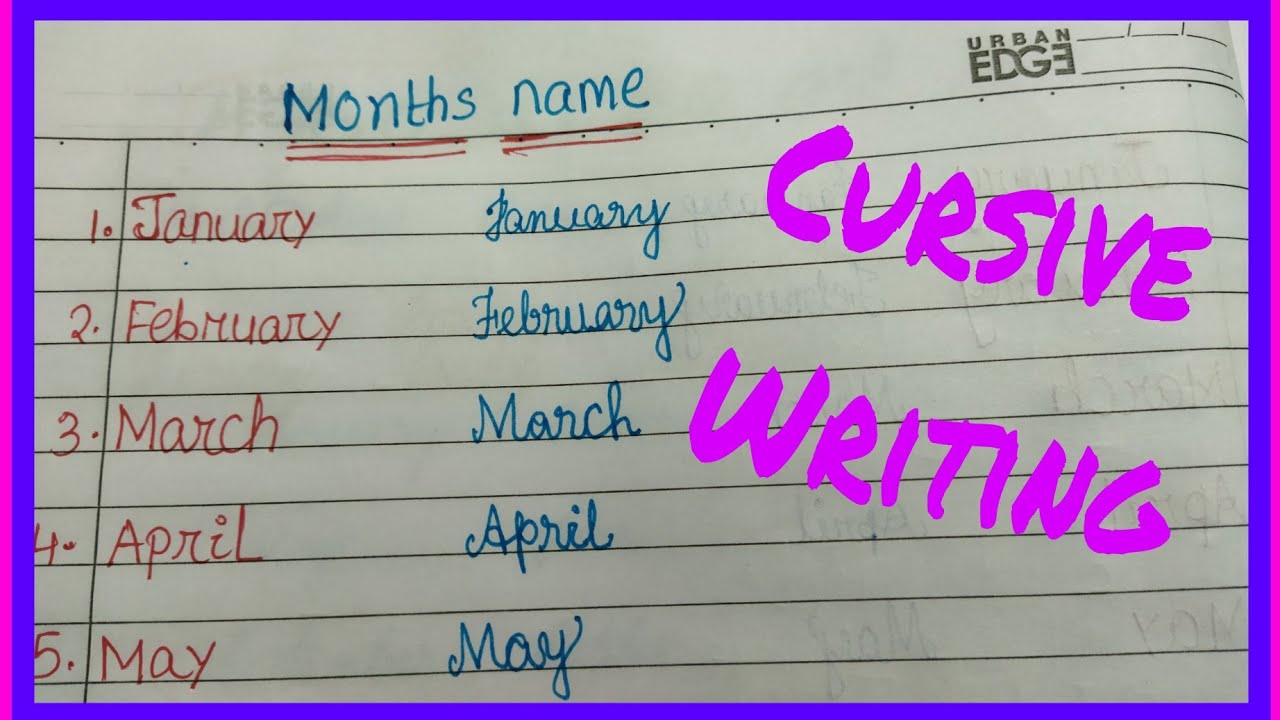 URBAN
EDGE
Months name
1. January January
2. February February
3. March March
4. April April
5. May May
CURSIVE
WRITING